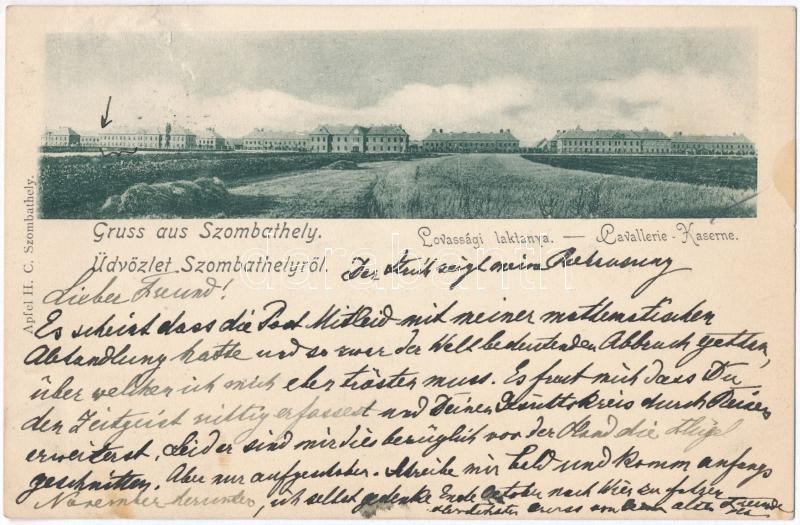 Gruss aus Szombathely.
Lovassági laktanya. — Cavallerie-Kaserne.
Üdvözlet Szombathelyről.
Apfel H. C. Szombathely.
Der zeigt meine
Lieber Freund!
Es scheint dass die Post Mitleid mit meiner mathematischen
Abhandlung hatte und so zwar der Welt bedeutenden Abbruch gethan,
über welchen ich mich eher trösten muss. Es freut mich dass Du
den Zeitgeist richtig erfassest und Deinen durch Reisen
erweiterst, Leider sind mir diesbezüglich vor der Hand die Flügel
geschnitten. Aber nur aufgeschoben. Schreibe mir bald und komm anfangs
November herunter, ich selbst gedenke Ende October nach Wien zu
alten Freunde